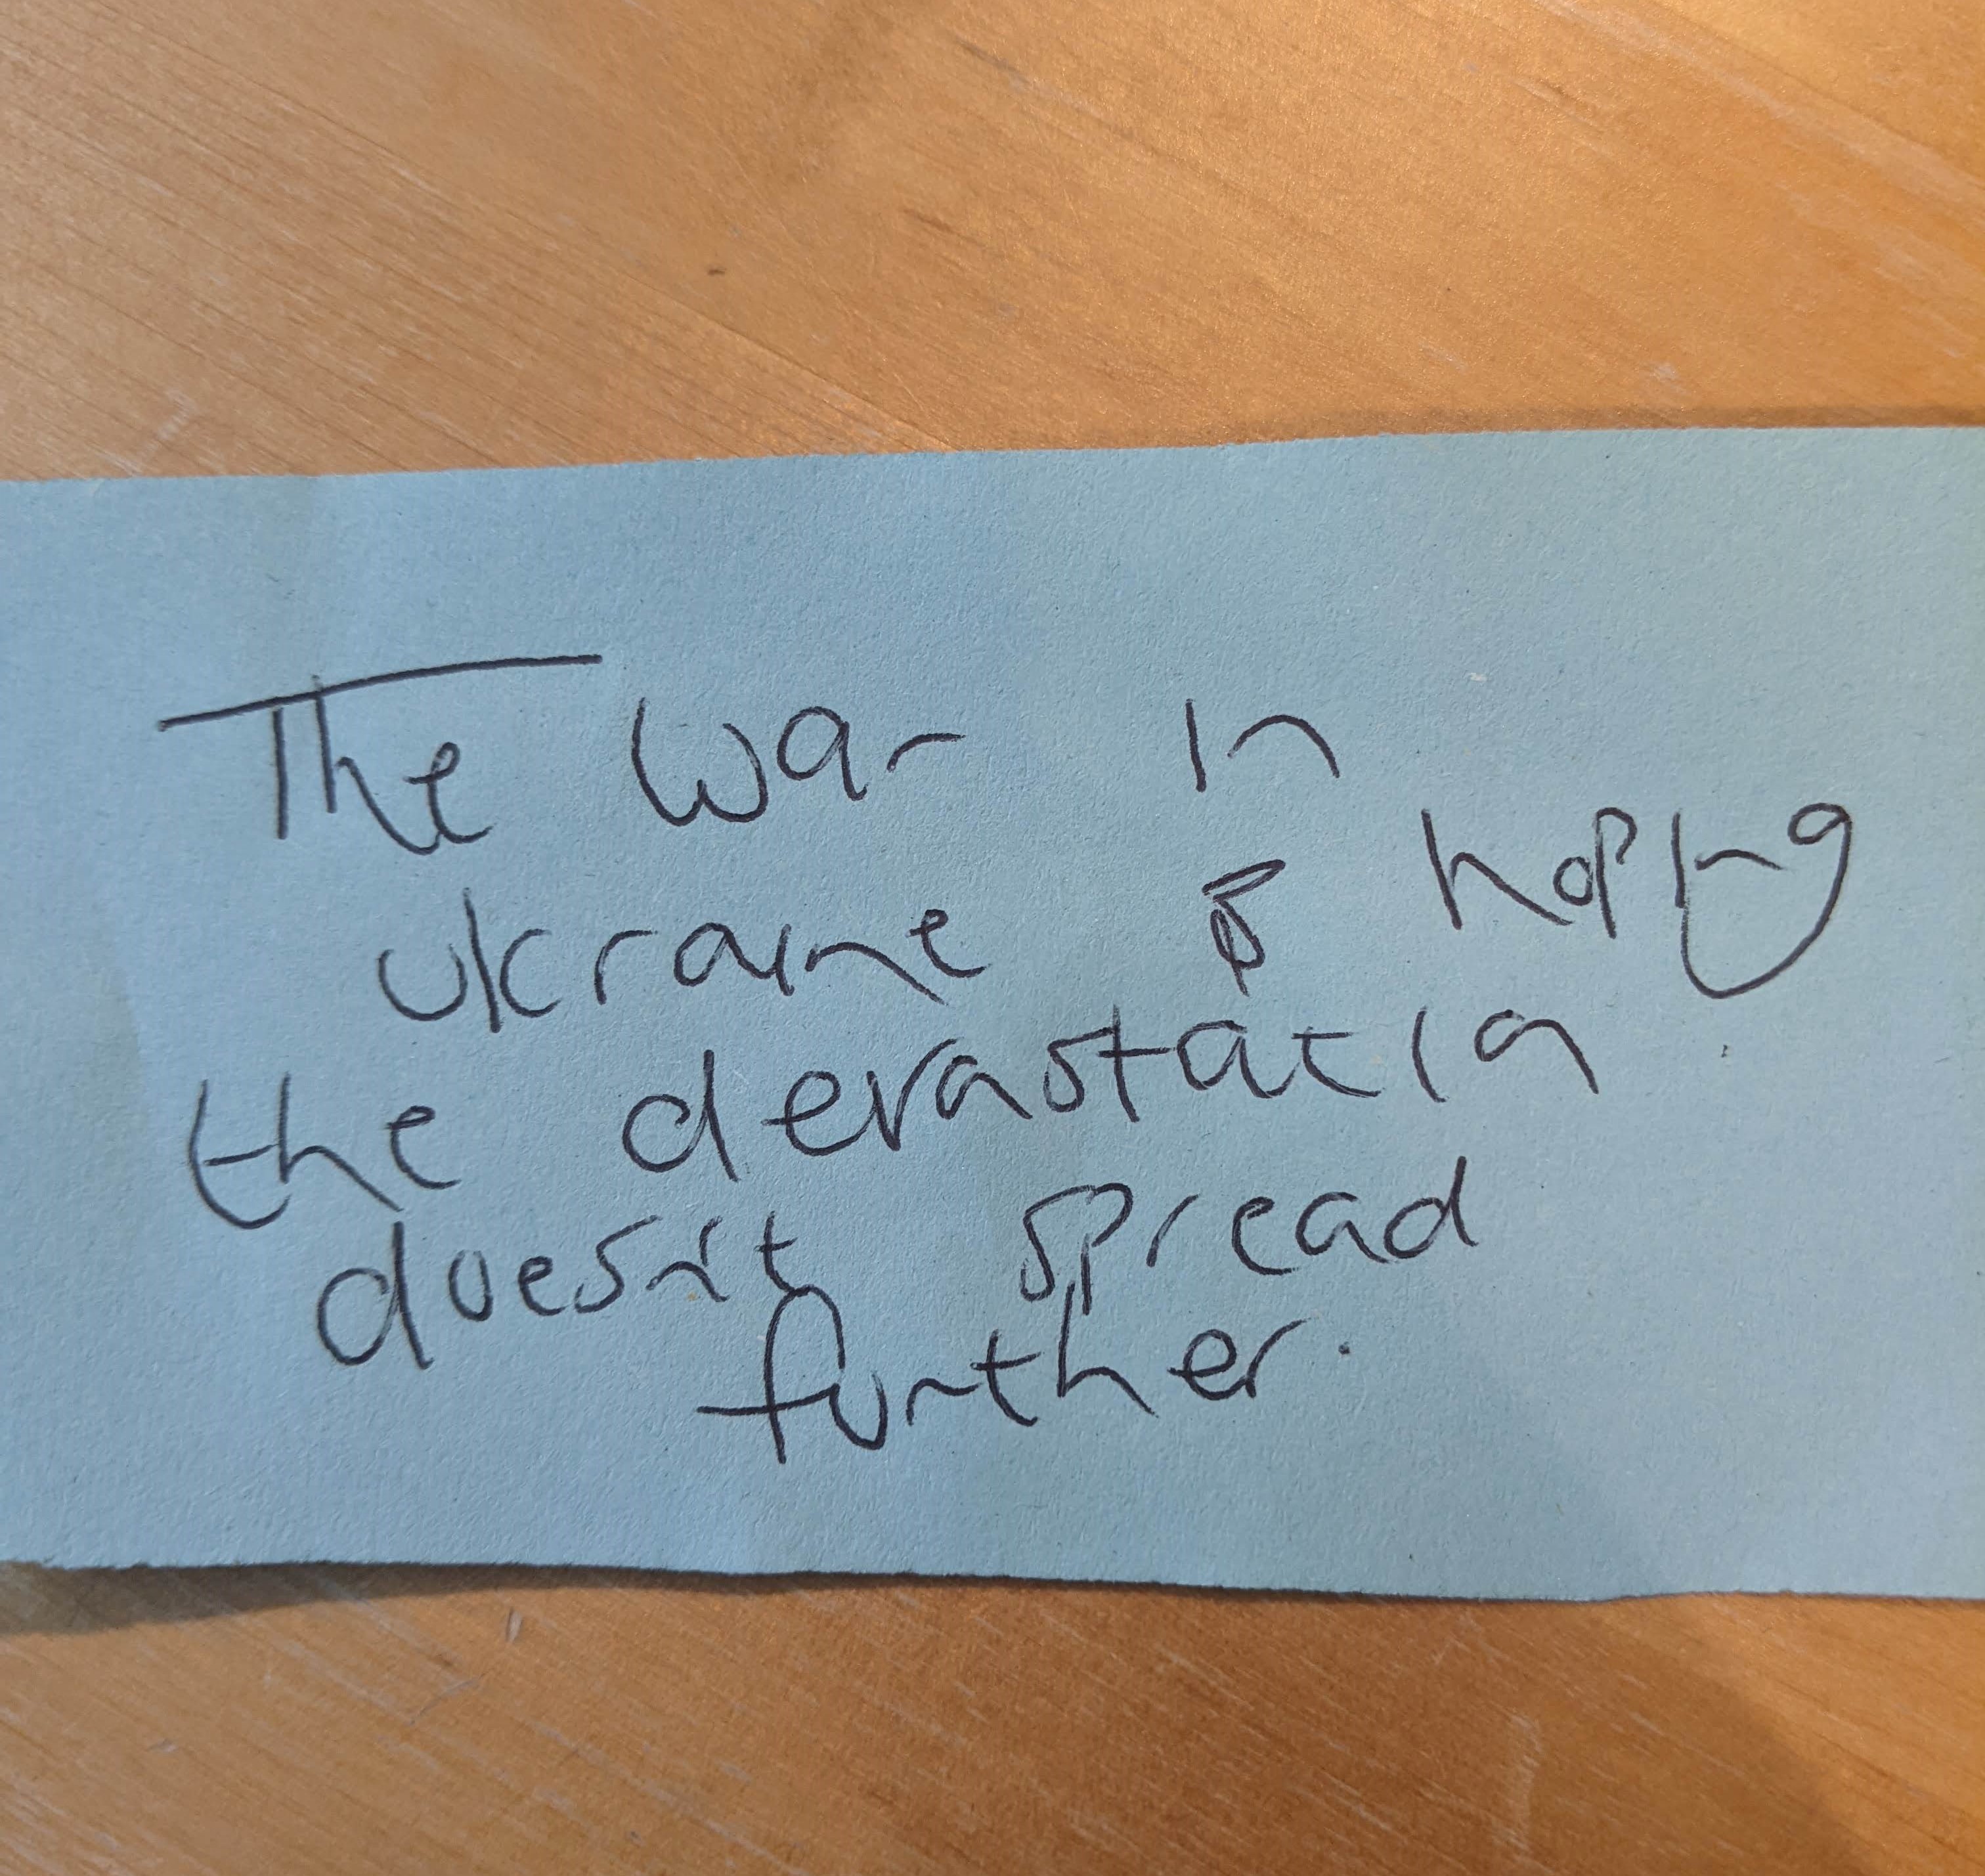 The war in
ukraine & hoping
the devastation
doesn't spread
further.